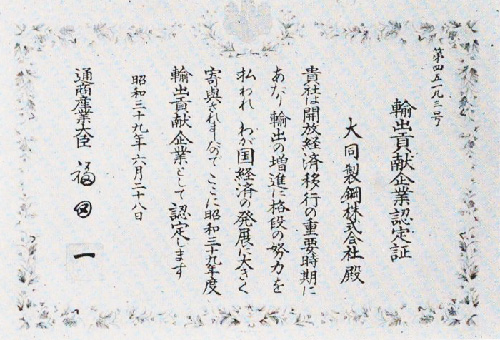 第四五一九三号
輸出貢献企業認定証
大同製鋼株式会社殿
貴社は開放経済移行の重要時期に
あたり輸出の増進に格段の努力を
払われ わが国経済の発展に大きく
寄與されましたので ここに昭和三十九年度
輸出貢献企業として認定します
昭和三十九年六月二十八日
通商産業大臣 福田 一